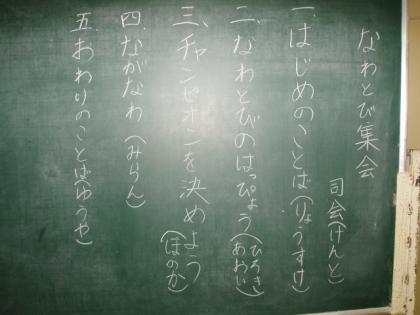 なわとび集会
司会(けんと)
一、はじめのことば(りょうすけ)
二、なわとびのはっぴょう(ひろき あおい)
三、チャンピオンを決めよう(ほのか)
四、ながなわ(みらん)
五、おわりのことば(ゆうや)